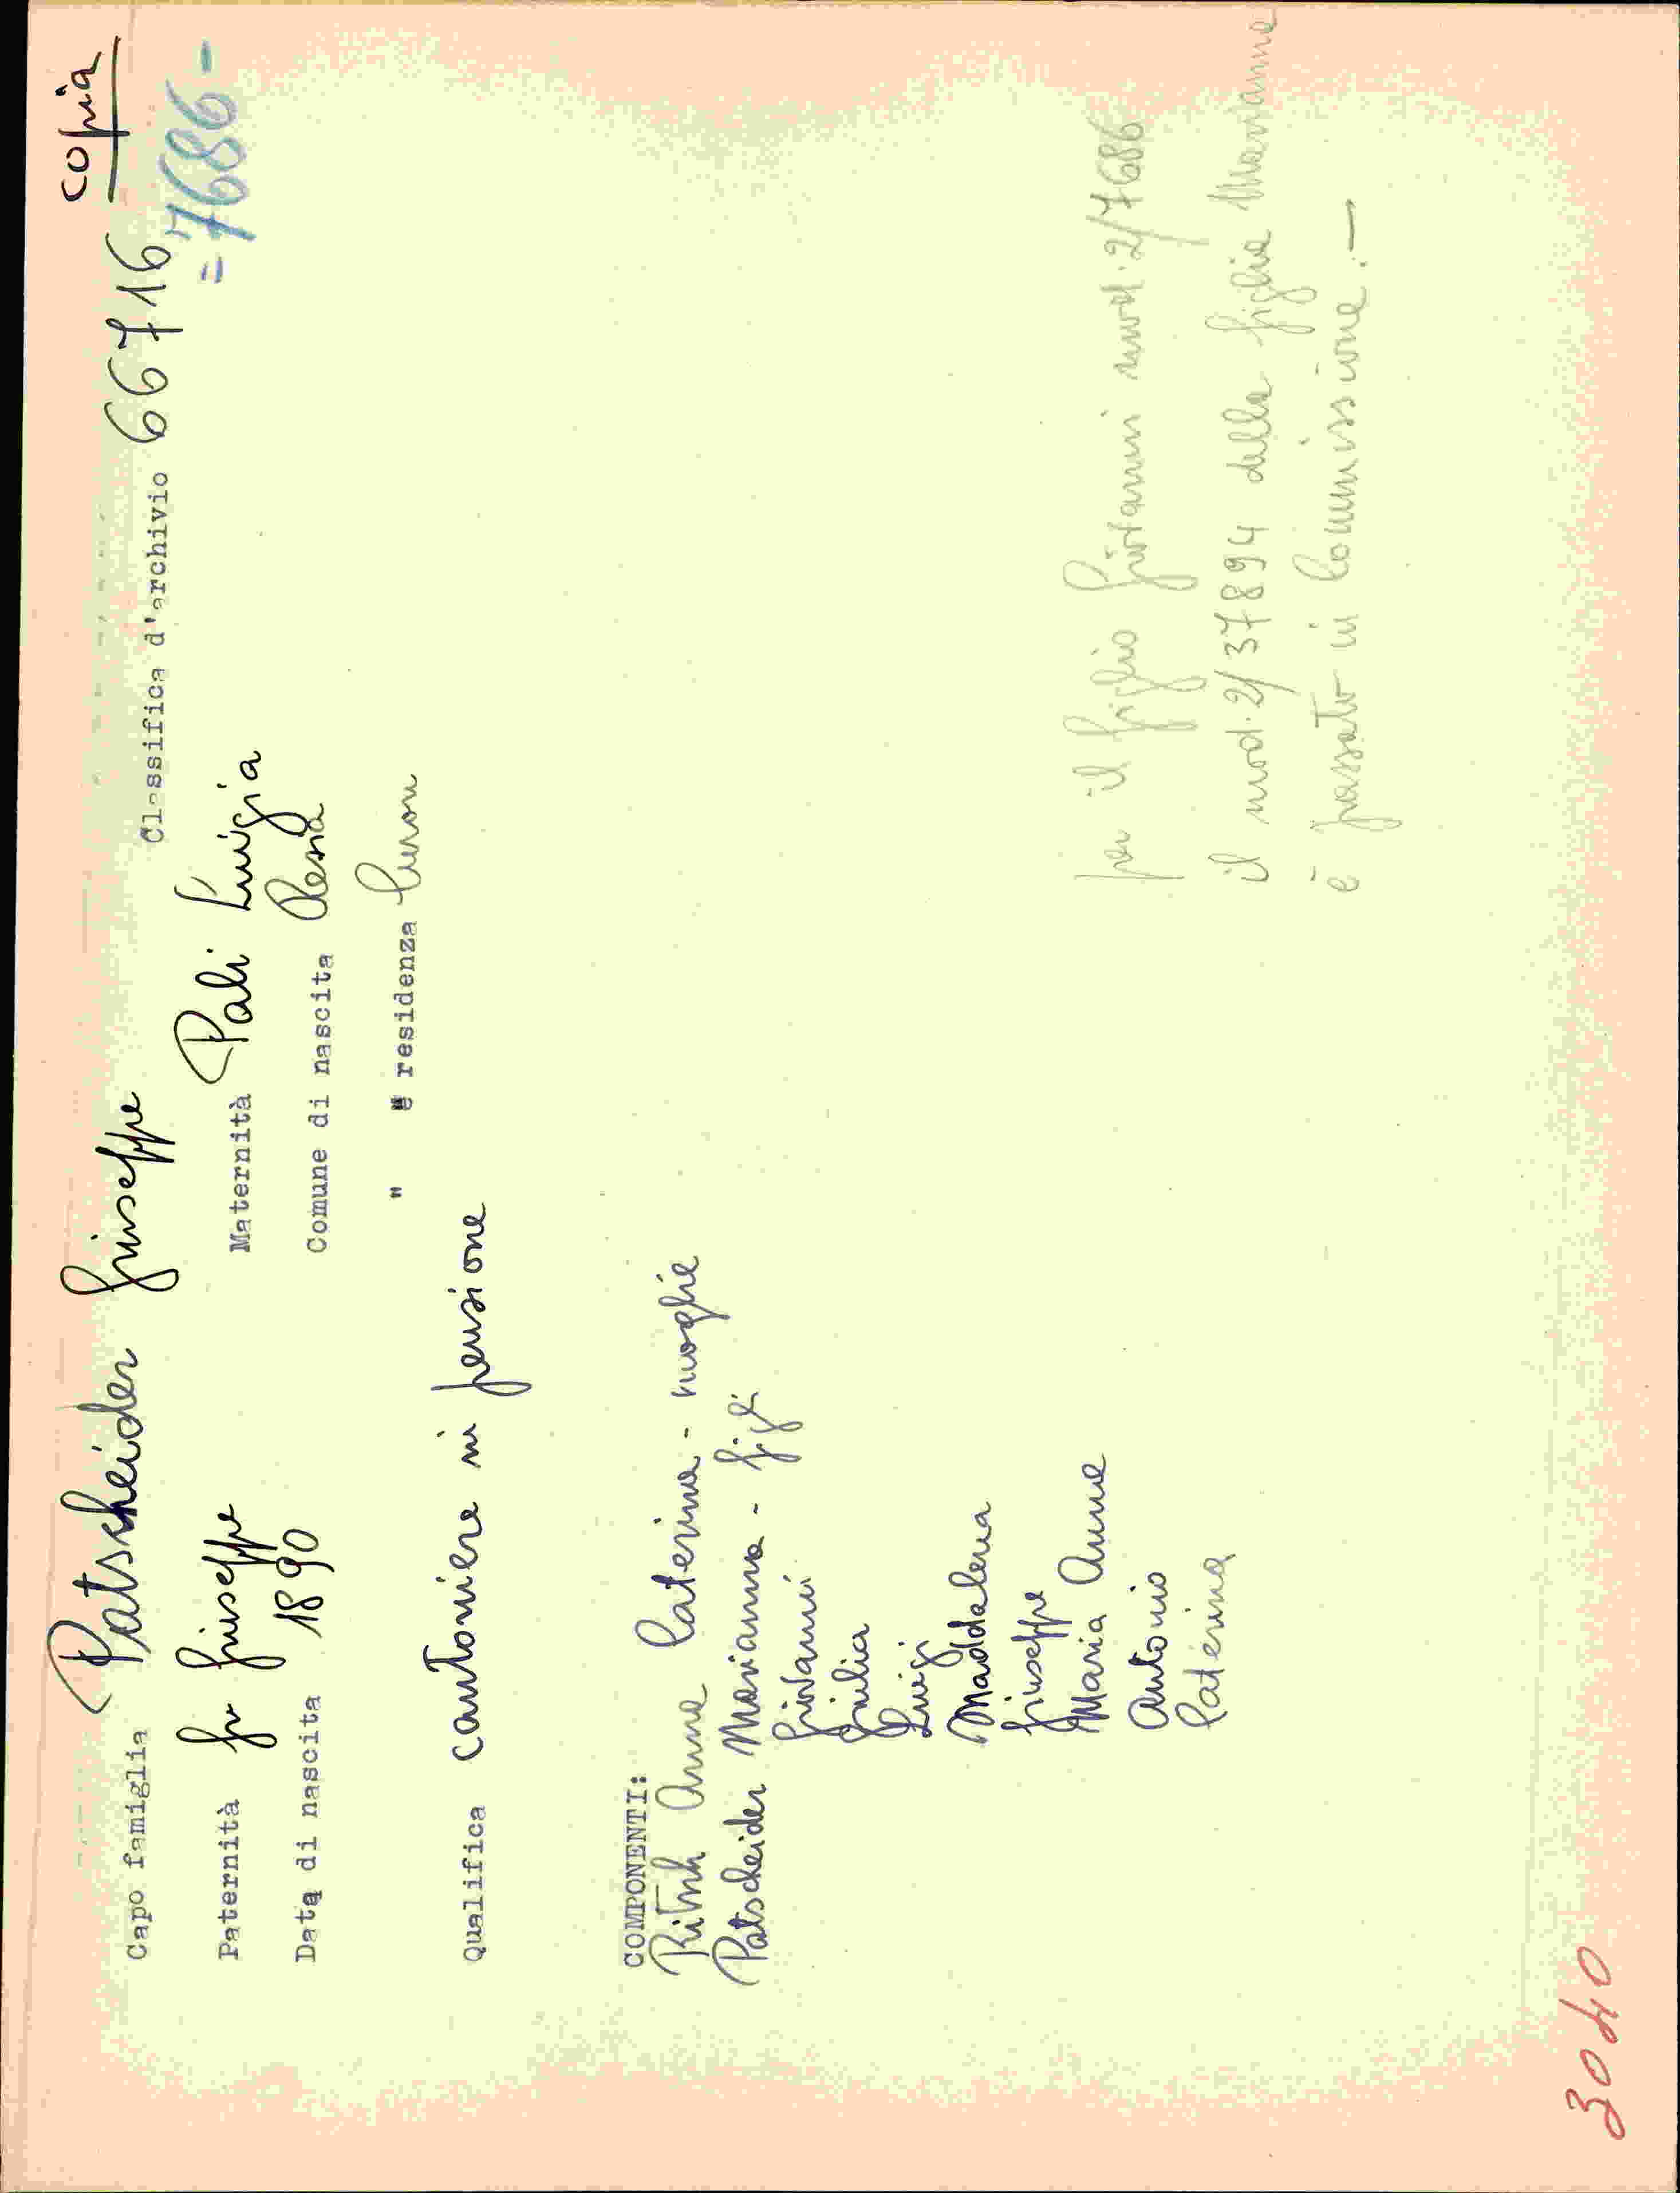 copia
Capo famiglia Patscheider Giuseppe Classifica d'archivio 66716
= 7686 -
Paternità fu Giuseppe Maternità Pali Luigia
Data di nascita 1890 Comune di nascita Resia
" e residenza Curon
Qualifica cantoniere in pensione
COMPONENTI:
Anna Caterina - moglie
Patscheider Marianna - figli
Giovanni
Giulia
Luigi
Maddalena
Giuseppe
Maria Anna
Antonio
Caterina
per il figlio Giovanni mod. 2/7686
il mod. 2/37894 della figlia Marianna
è passato in Commissione. —
3040